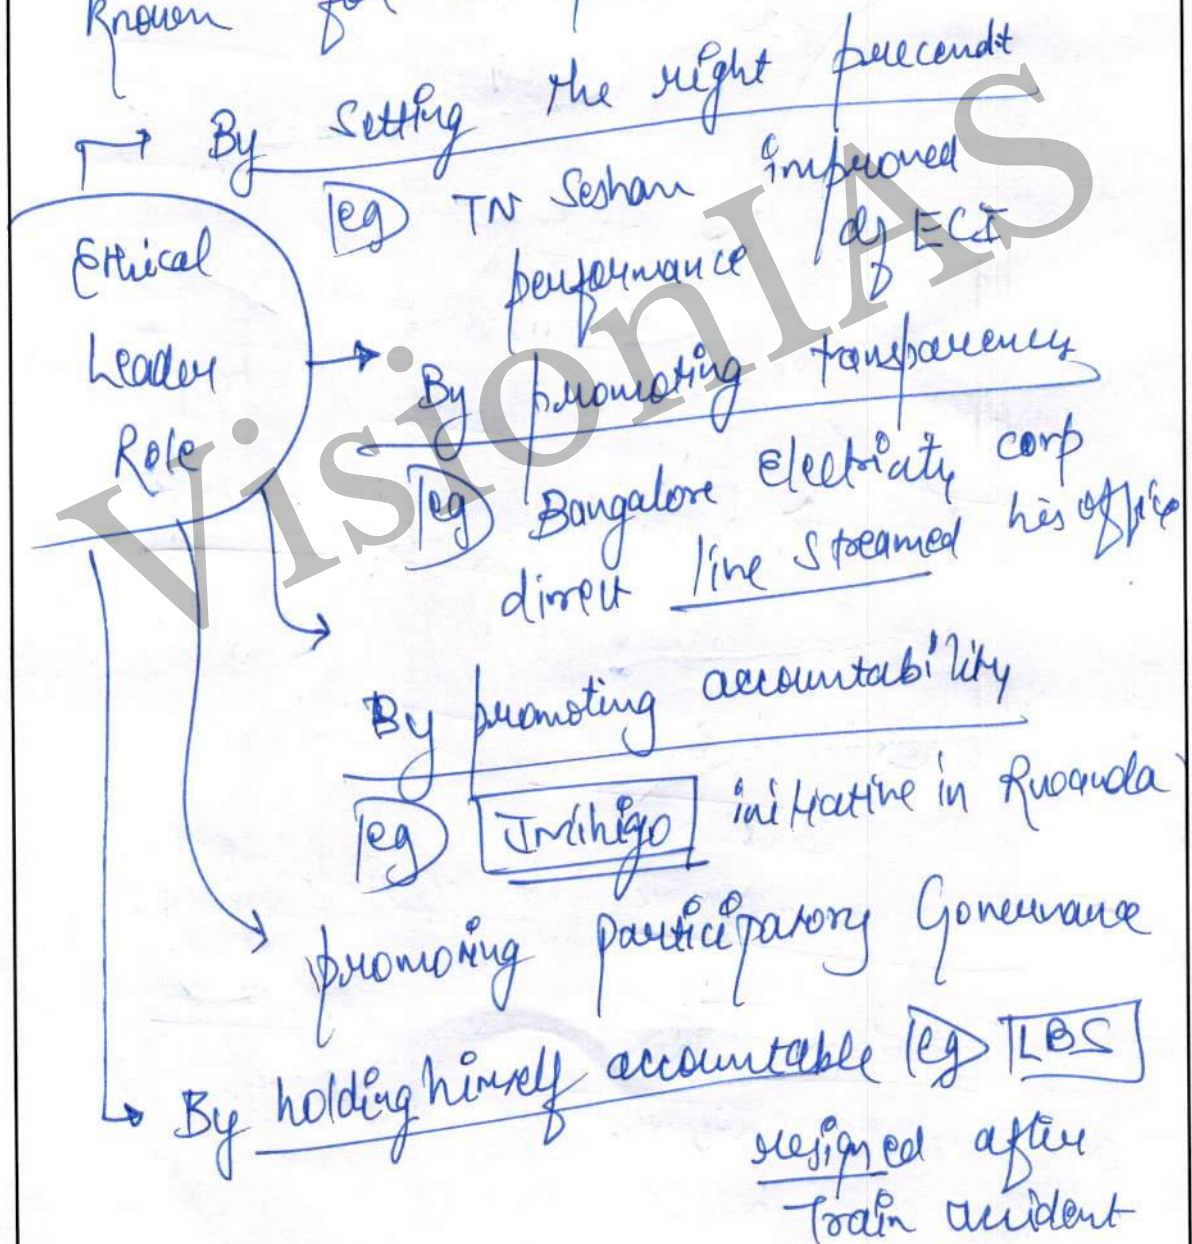 Known for
By Setting the right precendt
eg TN Seshan improved
performance of ECI
Ethical
Leader
Role
By promoting transparency
eg Bangalore Electricity corp
direct live streamed his office
By promoting accountability
eg Imihigo initiative in Rwanda
promoting participatory Governance
By holding himself accountable eg LBS
resigned after
Train accident
VisionIAS